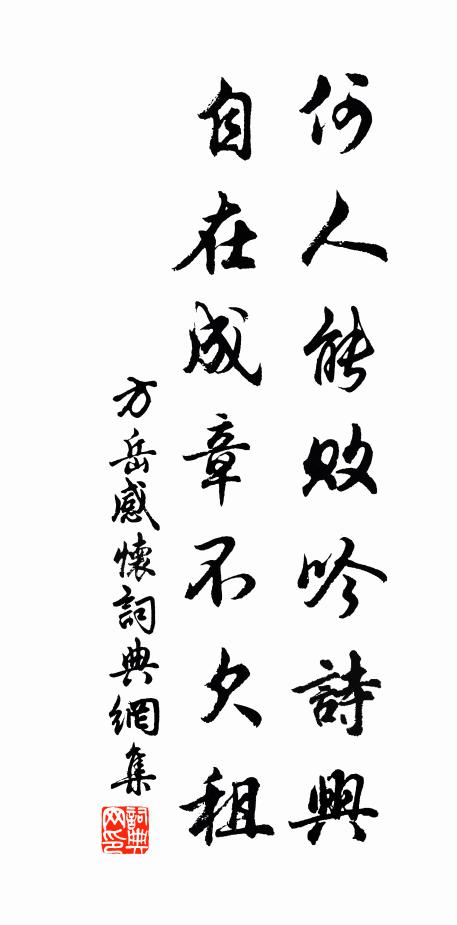 何人能败吟詩興
自在成章不欠租
方岳感懷詞典網集
詞典网印